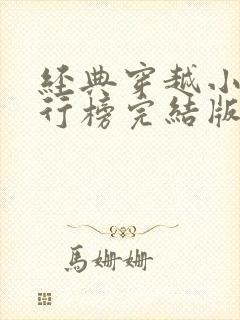 經典穿越小
行榜完結版
馬姍姍